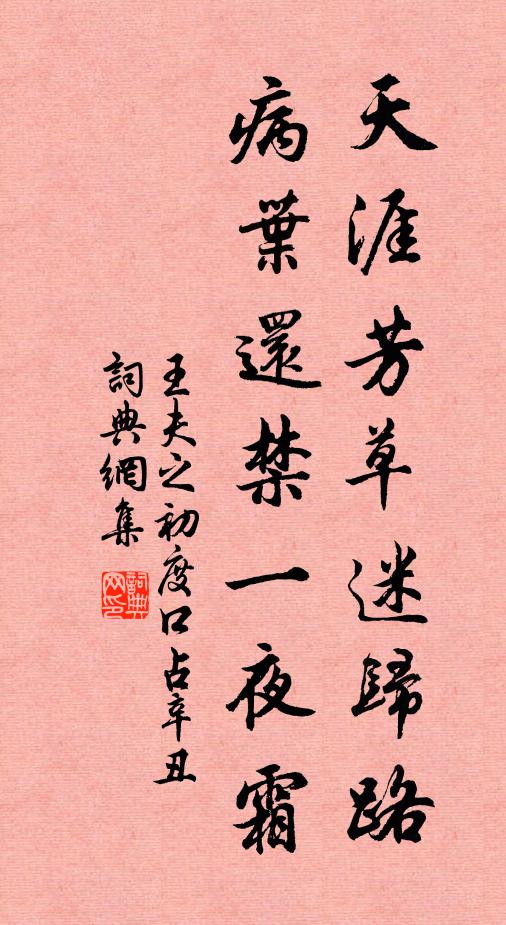 天涯芳草迷歸路
病葉還禁一夜霜
王夫之初度口占辛丑
詞典網集
詞典网印